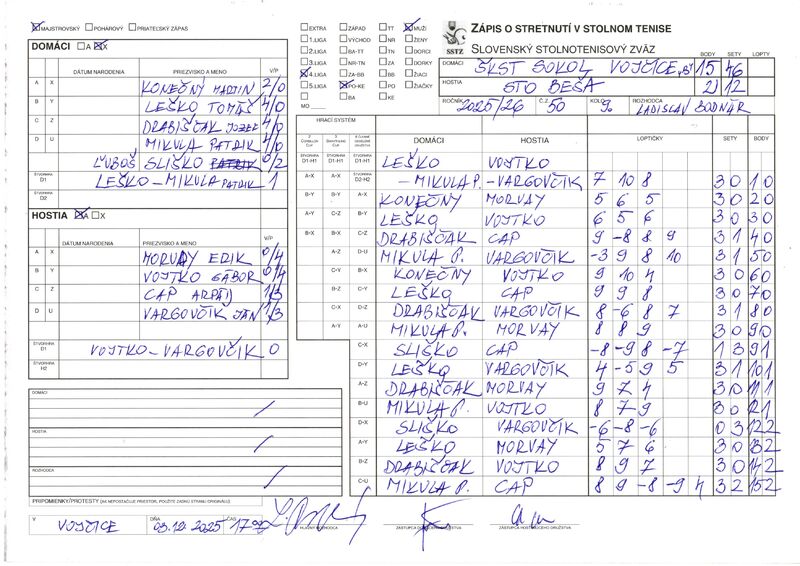 MAJSTROVSKÝ POHÁROVÝ PRIATEĽSKÝ ZÁPAS
DOMÁCI A X
DÁTUM NARODENIA PRIEZVISKO A MENO V/P
A X KONEČNÝ MARTIN 2/0
B Y LEŠKO TOMÁŠ 4/0
C Z DRABIŠČAK JOZEF 4/0
D U MIKULA PATRIK 4/0
ĽUBOŠ SLIŠKO PATRIK 0/2
ŠTVORHRA D1 LEŠKO-MIKULA PATRIK 1
ŠTVORHRA D2
HOSTIA A X
DÁTUM NARODENIA PRIEZVISKO A MENO V/P
A X MORVAY ERIK 0/4
B Y VOJTKO GÁBOR 0/4
C Z CAP ARPÁD 1/3
D U VARGOVČÍK JÁN 1/3
ŠTVORHRA D1 VOJTKO-VARGOVČÍK 0
ŠTVORHRA H2
DOMÁCI
HOSTIA
ROZHODCA
PRIPOMIENKY/PROTESTY (AK NEPOSTAČUJE PRIESTOR, POUŽITE ZADNÚ STRANU ORIGINÁLU)
V VOJČICE DŇA 03.12.2025 ČAS 17 00
HLAVNÝ ROZHODCA ZÁSTUPCA DOMÁCEHO DRUŽSTVA ZÁSTUPCA HOSŤUJÚCEHO DRUŽSTVA
EXTRA ZÁPAD TT MUŽI
1.LIGA VÝCHOD NR ŽENY
2.LIGA BA-TT TN DORCI
3.LIGA NR-TN ZA DORKY
4.LIGA ZA-BB BB ŽIACI
5.LIGA PO-KE PO ŽIAČKY
BA KE
MO
SSTZ
ZÁPIS O STRETNUTÍ V STOLNOM TENISE
SLOVENSKÝ STOLNOTENISOVÝ ZVÄZ
BODY SETY LOPTY
DOMÁCI ŠKST SOKOL VOJČICE "B" 15 46
HOSTIA STO BEŠA 2 12
ROČNÍK 2025/26 Č.Z. 50 KOLO 9. ROZHODCA LADISLAV BODNÁR
HRACÍ SYSTÉM
DOMÁCI HOSTIA LOPTIČKY SETY BODY
ŠTVORHRA D1-H1 ŠTVORHRA D1-H1 ŠTVORHRA D1-H1 LEŠKO VOJTKO
A-X A-X ŠTVORHRA D2-H2 -MIKULA P. -VARGOVČÍK 7 10 8 3 0 1 0
B-Y B-Y A-X KONEČNÝ MORVAY 5 6 5 3 0 2 0
A-Y C-Z B-Y LEŠKO VOJTKO 6 5 6 3 0 3 0
B-X B-X C-Z DRABIŠČAK CAP 9 -8 8 9 3 1 4 0
A-Z D-U MIKULA P. VARGOVČÍK -3 9 8 10 3 1 5 0
C-Y B-X KONEČNÝ VOJTKO 9 10 4 3 0 6 0
B-Z C-Y LEŠKO CAP 9 9 8 3 0 7 0
C-X D-Z DRABIŠČAK VARGOVČÍK 8 -6 8 7 3 1 8 0
A-Y A-U MIKULA P. MORVAY 8 8 9 3 0 9 0
C-X SLIŠKO CAP -8 -9 8 -7 1 3 9 1
D-Y LEŠKO VARGOVČÍK 4 -5 9 5 3 1 10 1
A-Z DRABIŠČAK MORVAY 9 7 4 3 0 11 1
B-U MIKULA P. VOJTKO 8 7 9 3 0 12 1
D-X SLIŠKO VARGOVČÍK -6 -8 -6 0 3 12 2
A-Y LEŠKO MORVAY 5 7 6 3 0 13 2
B-Z DRABIŠČAK VOJTKO 8 9 7 3 0 14 2
C-U MIKULA P. CAP 8 9 -8 -9 4 3 2 15 2